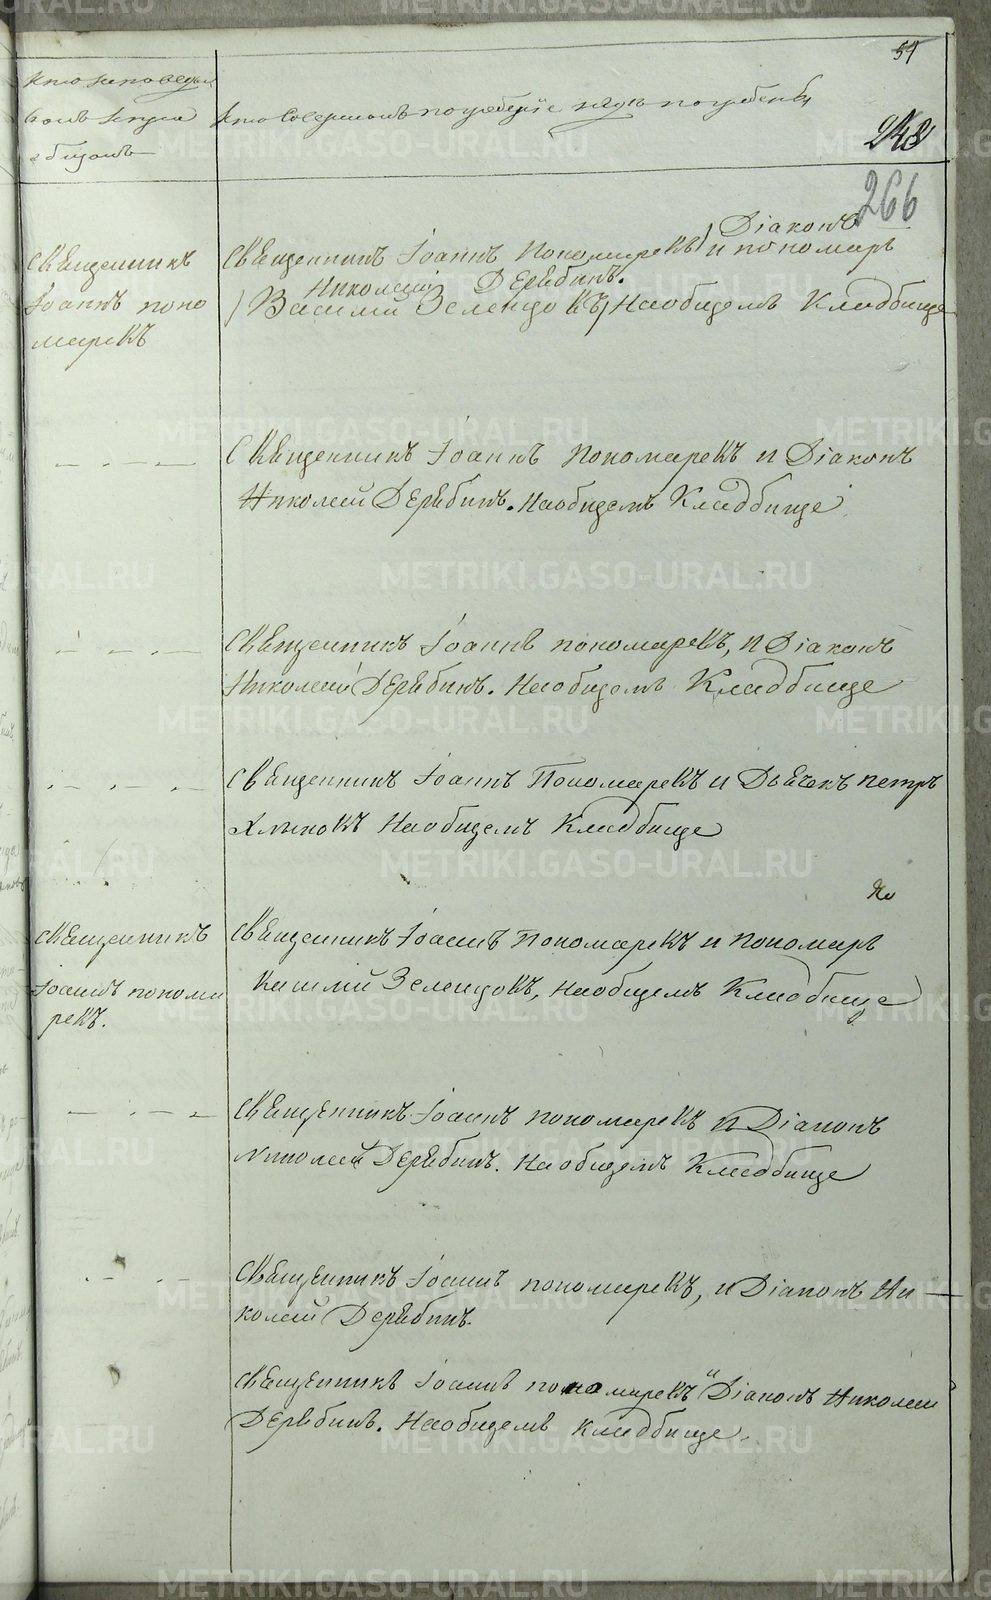 59
Кто исповедыв
Кто совершалъ погребеніе и гдѣ погребены
248
266
Священникъ
Іоаннъ Поно
маревъ
Діаконъ
Священникъ Іоаннъ Пономаревъ) и пономарь
Николай Деребинъ.
(Василій Зеленцовъ) На общемъ Кладбище
Священникъ Іоаннъ Пономаревъ и Діаконъ
Николай Деребинъ. На общемъ Кладбище
Священникъ Іоаннъ Пономаревъ, и Діаконъ
Николай Деребинъ. На общемъ Кладбище
Священникъ Іоаннъ Пономаревъ и Дьячекъ Петръ
Хлыновъ На общемъ Кладбище
Священникъ
Іоаннъ Понома
ревъ.
Священникъ Іоаннъ Пономаревъ и пономарь
Василій Зеленцовъ, На общемъ Кладбище
Священникъ Іоаннъ Пономаревъ и Діаконъ
Николай Деребинъ. На общемъ Кладбище
Священникъ Іоаннъ Пономаревъ, и Діаконъ Ни-
колай Деребинъ.
Священникъ Іоаннъ Пономаревъ и Діаконъ Николай
Деребинъ. На общемъ Кладбище.
METRIKI.GASO-URAL.RU